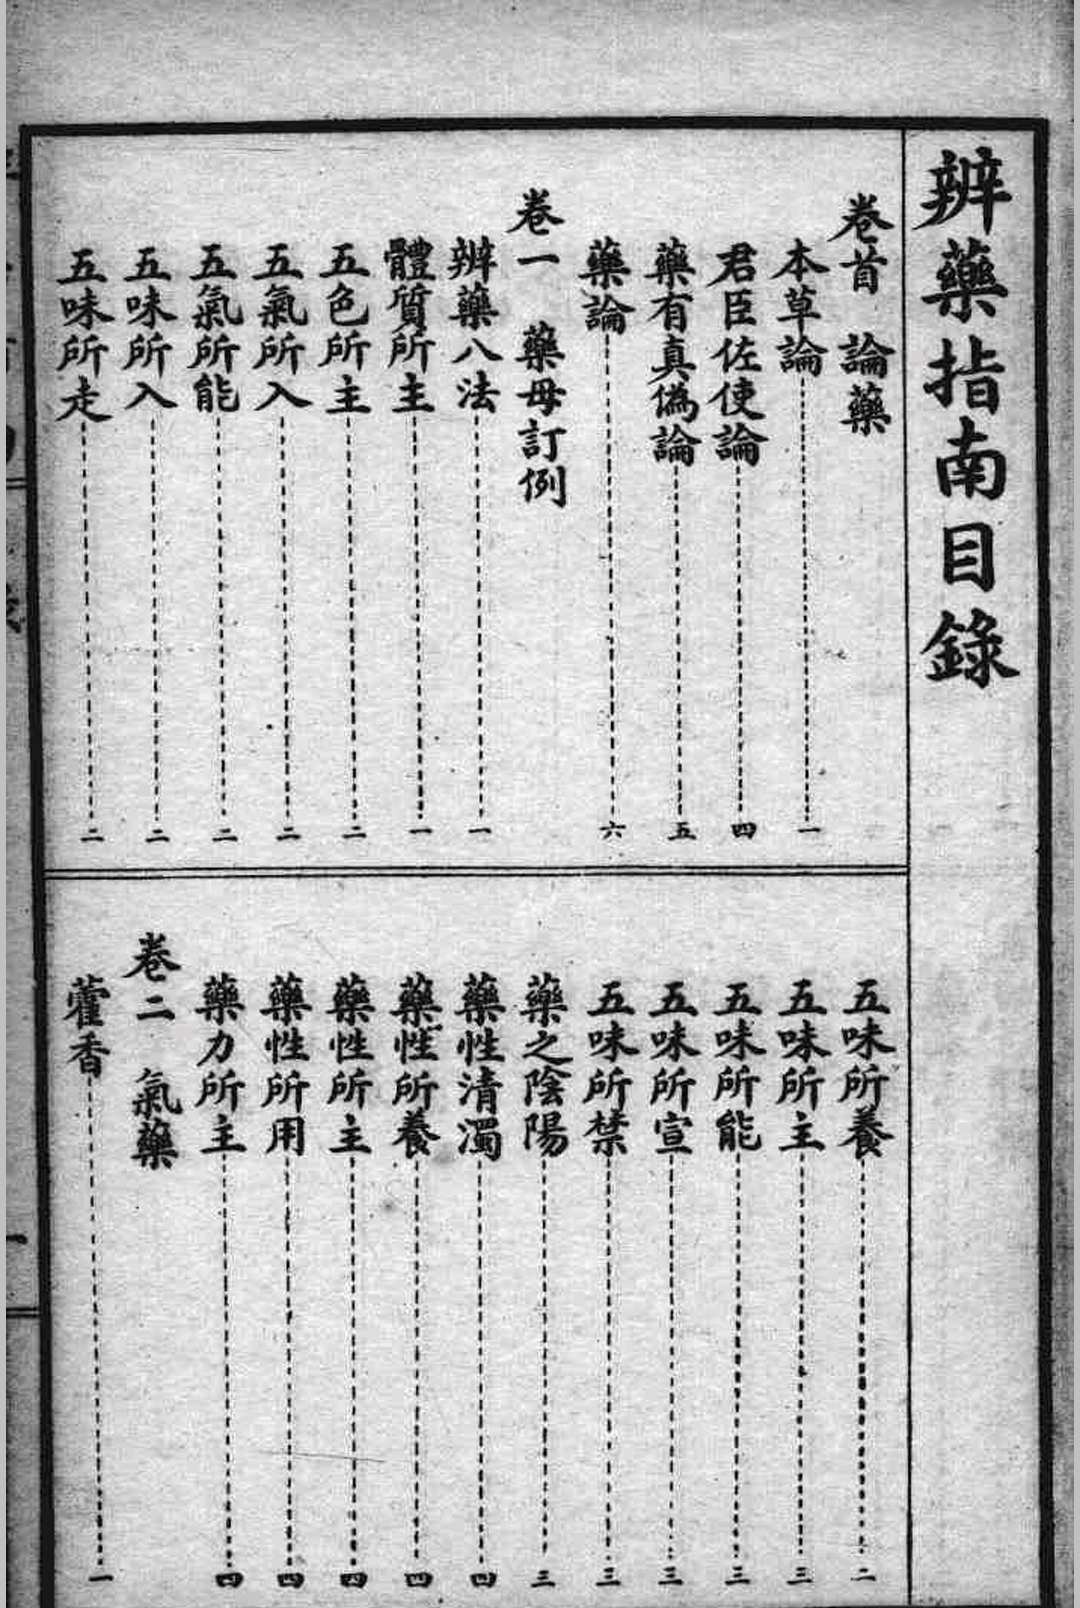 辨藥指南目錄
卷首 論藥
本草論 一
君臣佐使論 四
藥有真偽論 五
藥論 六
卷一 藥母訂例
辨藥八法 一
體質所主 一
五色所主 二
五氣所入 二
五氣所能 二
五味所入 二
五味所走 二
五味所養 二
五味所主 三
五味所能 三
五味所宣 三
五味所禁 三
藥之陰陽 三
藥性清濁 四
藥性所養 四
藥性所主 四
藥性所用 四
藥力所主 四
卷二 氣藥
藿香 一